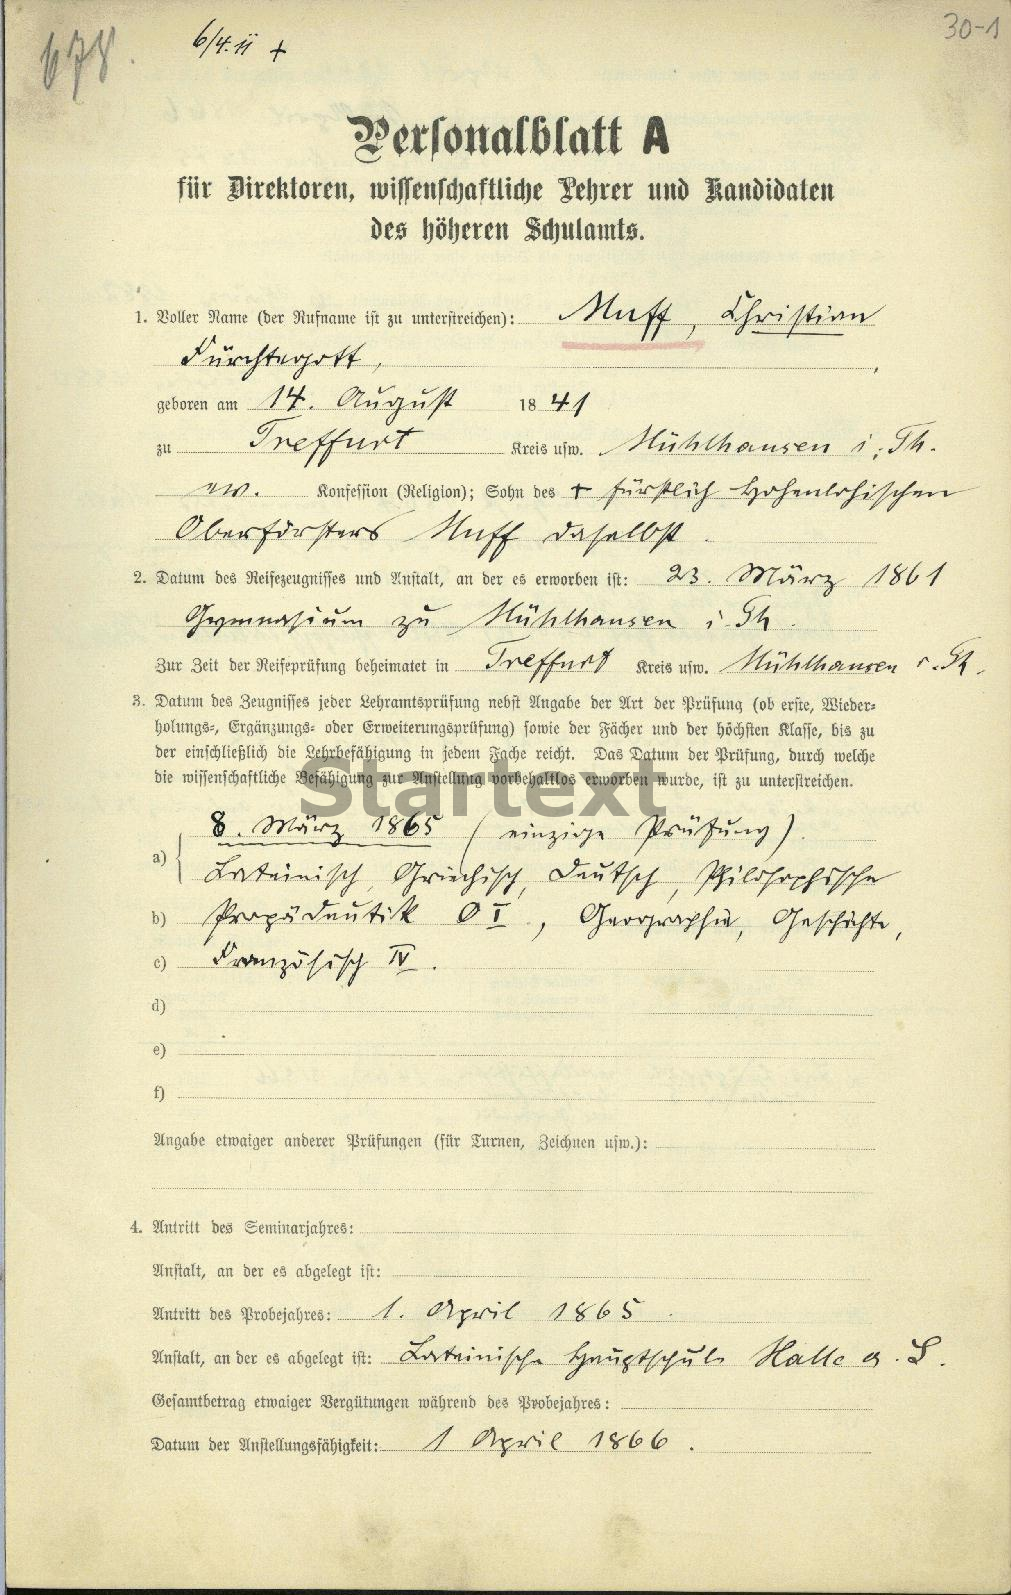 678.
6/4.11 +
30-1
Personalblatt A
für Direktoren, wissenschaftliche Lehrer und Kandidaten
des höheren Schulamts.
1. Voller Name (der Rufname ist zu unterstreichen): Muff, Christian
Fürchtegott,
geboren am 14. August 1841
zu Treffurt Kreis usw. Mühlhausen i. Th.
ev. Konfession (Religion); Sohn des + fürstlich Hohenlohischen
Oberförsters Muff daselbst.
2. Datum des Reifezeugnisses und Anstalt, an der es erworben ist: 23. März 1861
Gymnasium zu Mühlhausen i. Th.
Zur Zeit der Reifeprüfung beheimatet in Treffurt Kreis usw. Mühlhausen i. Th.
3. Datum des Zeugnisses jeder Lehramtsprüfung nebst Angabe der Art der Prüfung (ob erste, Wieder-
holungs-, Ergänzungs- oder Erweiterungsprüfung) sowie der Fächer und der höchsten Klasse, bis zu
der einschließlich die Lehrbefähigung in jedem Fache reicht. Das Datum der Prüfung, durch welche
die wissenschaftliche Befähigung zur Anstellung vorbehaltlos erworben wurde, ist zu unterstreichen.
Startext
8. März 1865 (einzige Prüfung).
a) Lateinisch, Griechisch, Deutsch, Philosophische
b) Propädeutik O I, Geographie, Geschichte,
c) Französisch IV.
d)
e)
f)
Angabe etwaiger anderer Prüfungen (für Turnen, Zeichnen usw.):
4. Antritt des Seminarjahres:
Anstalt, an der es abgelegt ist:
Antritt des Probejahres: 1. April 1865.
Anstalt, an der es abgelegt ist: Lateinische Hauptschule Halle a. S.
Gesamtbetrag etwaiger Vergütungen während des Probejahres:
Datum der Anstellungsfähigkeit: 1 April 1866.